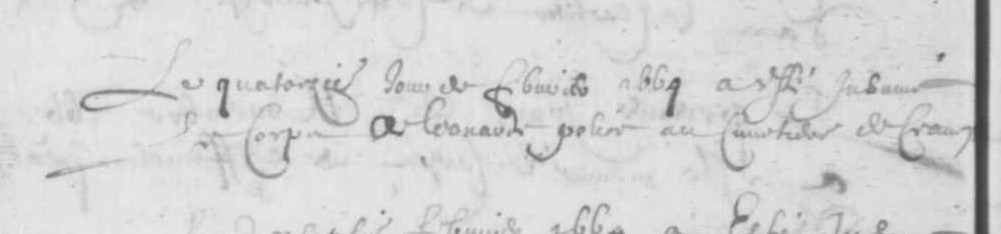 Le quatorzies Jour de febvrier 1664 a esté Inhumé
Le Corps de leonarde au Cimetiere de
febvrier 1664 a Esté